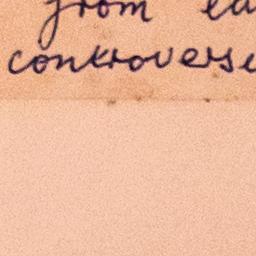 from ea
controverse